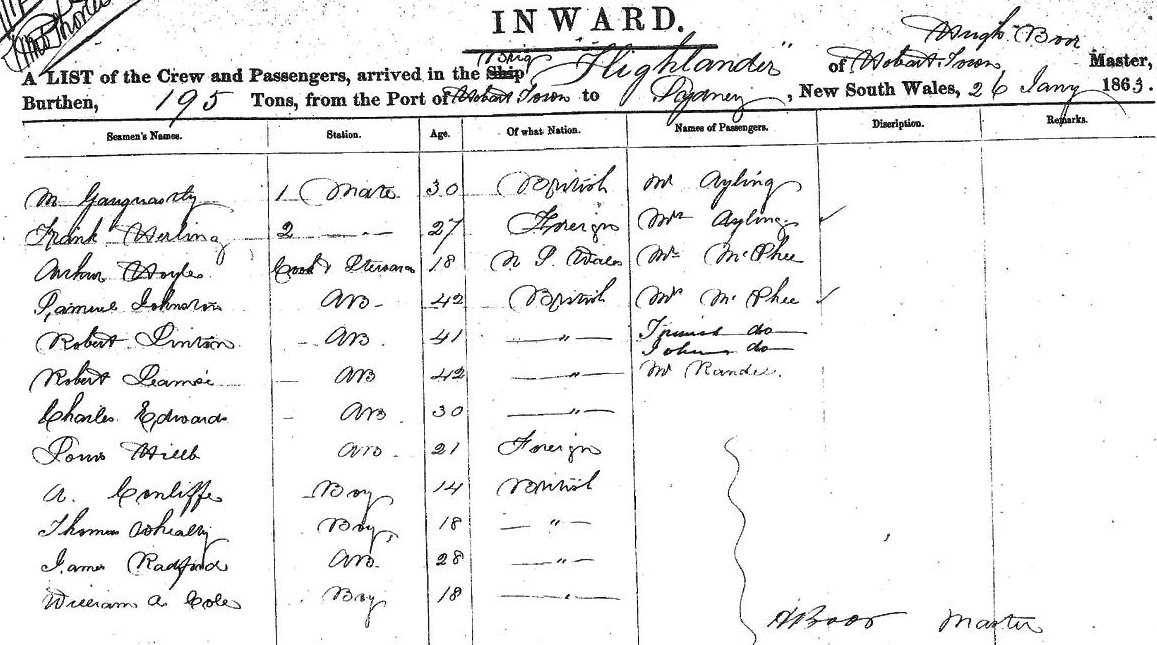 INWARD.
Hugh Boor
A LIST of the Crew and Passengers, arrived in the Ship Brig "Highlander" of Hobart Town Master,
Burthen, 195 Tons, from the Port of Hobart Town to Sydney, New South Wales, 26 Jany 1863.
Seamen's Names. Station. Age. Of what Nation. Names of Passengers. Discription. Remarks.
M 1 Mate 30 British Mr Ayling
Frank Herling 2 — " — 27 Foreign Mrs Ayling ✓
Arthur Hoyles Cook & Steward 18 N S. Wales Mr McPhee
Samuel Johnston AB 42 British Mrs McPhee ✓
Robert Linton AB 41 — " — do
John do
Robert AB 42 — " — Mr
Charles Edwards AB 30 — " —
Louis AB 21 Foreign
A. Conliffe Boy 14 British
Thomas Whealy Boy 18 — " —
James Radford AB 28 — " —
William A Cole Boy 18 — " —
H Boor Master